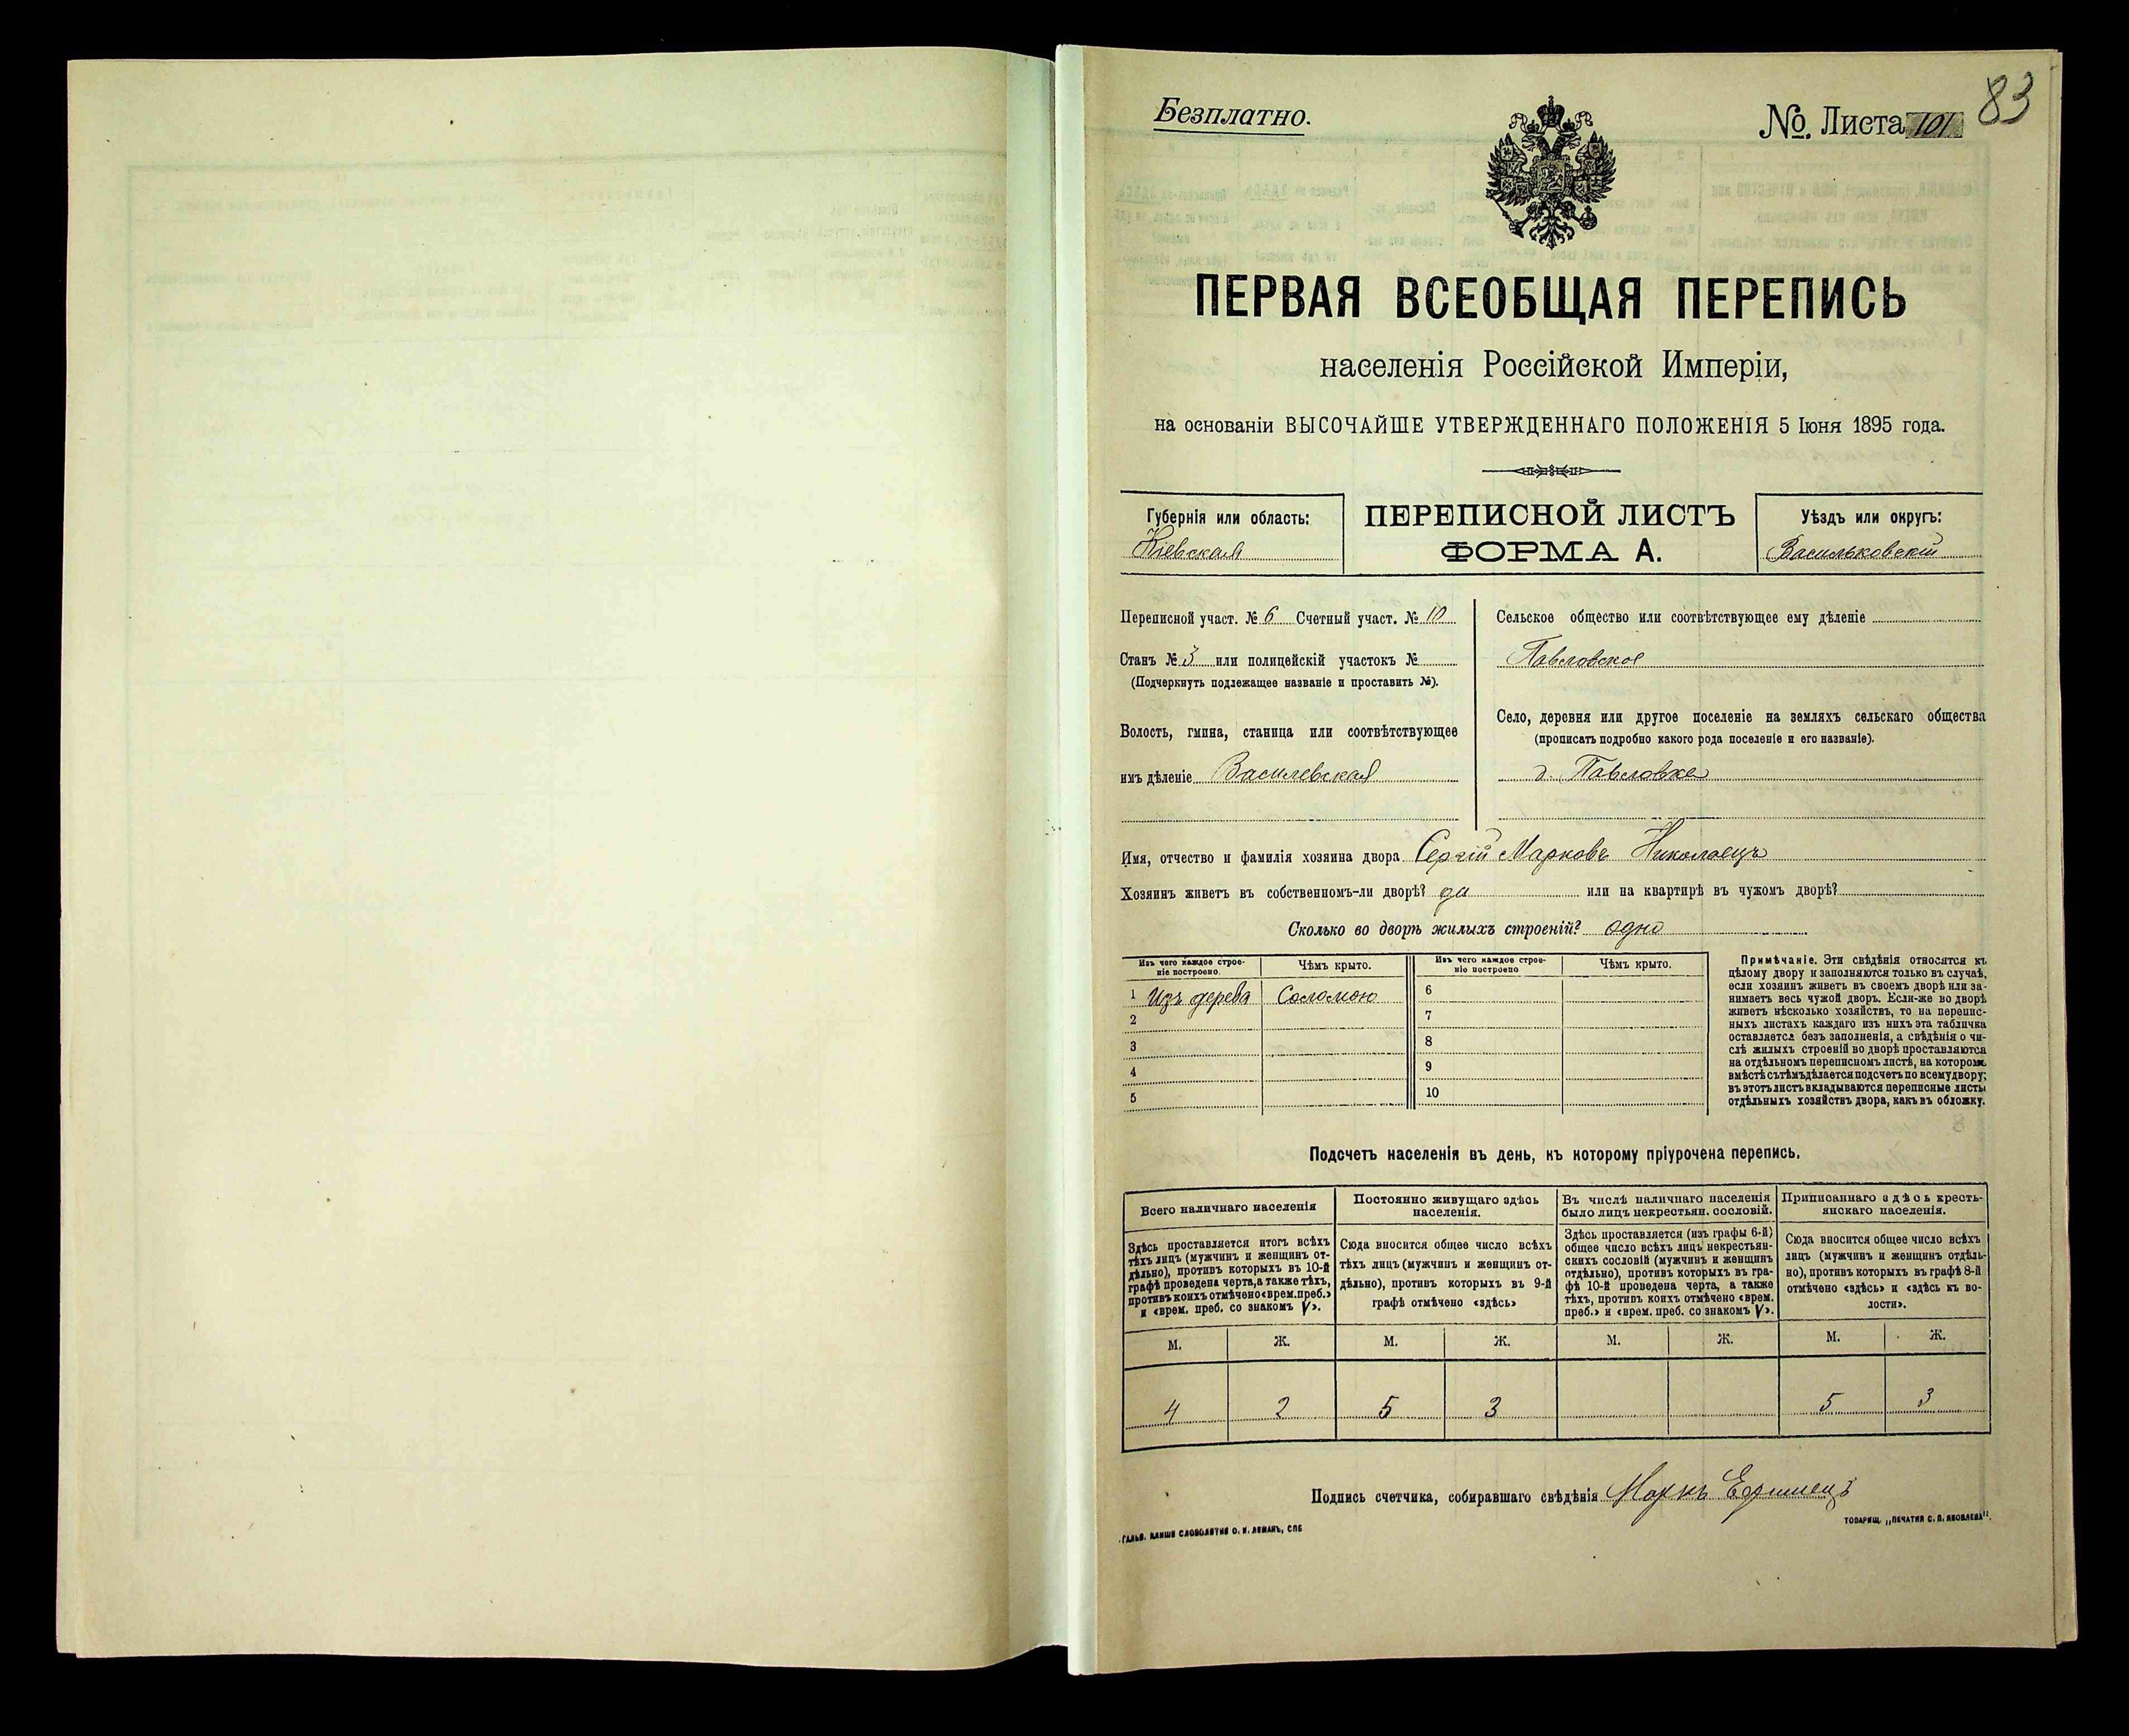 83
Безплатно.
№. Листа 101
ПЕРВАЯ ВСЕОБЩАЯ ПЕРЕПИСЬ
населенія Россійской Имперіи,
на основаніи ВЫСОЧАЙШЕ УТВЕРЖДЕННАГО ПОЛОЖЕНІЯ 5 Іюня 1895 года.
Губернія или область:
Кіевская
ПЕРЕПИСНОЙ ЛИСТЪ
ФОРМА А.
Уѣздъ или округъ:
Васильковскій
Переписной участ. № 6 Счетный участ. № 10
Станъ № 3 или полицейскій участокъ №
(Подчеркнуть подлежащее названіе и проставить №).
Волость, гмина, станица или соотвѣтствующее
имъ дѣленіе Василевская
Сельское общество или соотвѣтствующее ему дѣленіе
Павловское
Село, деревня или другое поселеніе на земляхъ сельскаго общества
(прописать подробно какого рода поселеніе и его названіе).
д. Павловка
Имя, отчество и фамилія хозяина двора Сергій Марковъ Николаецъ
Хозяинъ живетъ въ собственномъ-ли дворѣ? да или на квартирѣ въ чужомъ дворѣ?
Сколько во дворѣ жилыхъ строеній? одно
Изъ чего каждое строе-
ніе построено.
Чѣмъ крыто.
Изъ чего каждое строе-
ніе построено
Чѣмъ крыто.
1 Изъ дерева Соломою 6
2 7
3 8
4 9
5 10
Примѣчаніе. Эти свѣдѣнія относятся къ
цѣлому двору и заполняются только въ случаѣ,
если хозяинъ живетъ въ своемъ дворѣ или за-
нимаетъ весь чужой дворъ. Если-же во дворѣ
живетъ нѣсколько хозяйствъ, то на перепис-
ныхъ листахъ каждаго изъ нихъ эта табличка
оставляется безъ заполненія, а свѣдѣнія о чи-
слѣ жилыхъ строеній во дворѣ проставляются
на отдѣльномъ переписномъ листѣ, на которомъ
вмѣстѣ съ тѣмъ дѣлается подсчетъ по всему двору;
въ этотъ листъ вкладываются переписные листы
отдѣльныхъ хозяйствъ двора, какъ въ обложку.
Подсчетъ населенія въ день, къ которому пріурочена перепись.
Всего наличнаго населенія
Здѣсь проставляется итогъ всѣхъ
тѣхъ лицъ (мужчинъ и женщинъ от-
дѣльно), противъ которыхъ въ 10-й
графѣ проведена черта, а также тѣхъ,
противъ коихъ отмѣчено «врем. преб.»
и «врем. преб. со знакомъ V».
Постоянно живущаго здѣсь
населенія.
Сюда вносится общее число всѣхъ
тѣхъ лицъ (мужчинъ и женщинъ от-
дѣльно), противъ которыхъ въ 9-й
графѣ отмѣчено «здѣсь»
Въ числѣ наличнаго населенія
было лицъ некрестьян. сословій.
Здѣсь проставляется (изъ графы 6-й)
общее число всѣхъ лицъ некрестьян-
скихъ сословій (мужчинъ и женщинъ
отдѣльно), противъ которыхъ въ гра-
фѣ 10-й проведена черта, а также
тѣхъ, противъ коихъ отмѣчено «врем.
преб.» и «врем. преб. со знакомъ V».
Приписаннаго здѣсь кресть-
янскаго населенія.
Сюда вносится общее число всѣхъ
лицъ (мужчинъ и женщинъ отдѣль-
но), противъ которыхъ въ графѣ 8-й
отмѣчено «здѣсь» и «здѣсь къ во-
лости».
М. Ж. М. Ж. М. Ж. М. Ж.
4 2 5 3 5 3
Подпись счетчика, собиравшаго свѣдѣнія Маркъ
ГАЛЬВ. КЛИШЕ СЛОВОЛИТНИ О. И. ЛЕМАНЪ, СПБ
ТОВАРИЩ. „ПЕЧАТНЯ С. П. ЯКОВЛЕВА".